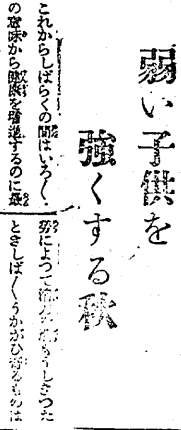 弱い子供を
強くする秋
これからしばらくの間はいろ〳〵
の意味から健康を増進するのに最
によつて
とさしば〳〵うかがひ得るものは